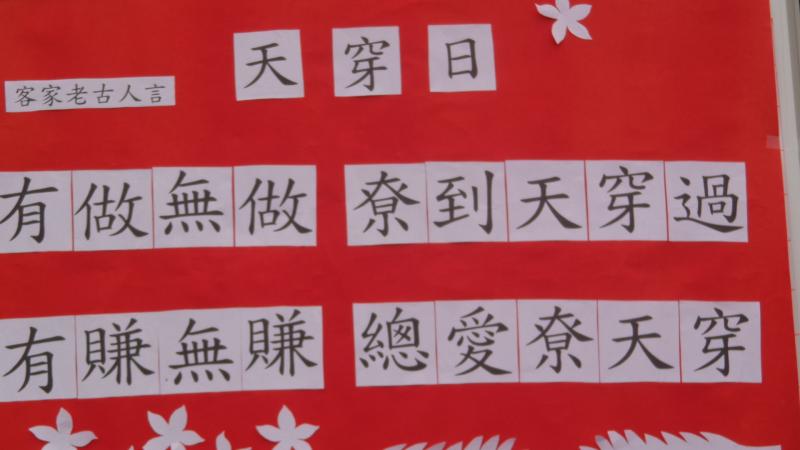 天穿日
客家老古人言
有做無做 尞到天穿過
有賺無賺 總愛尞天穿